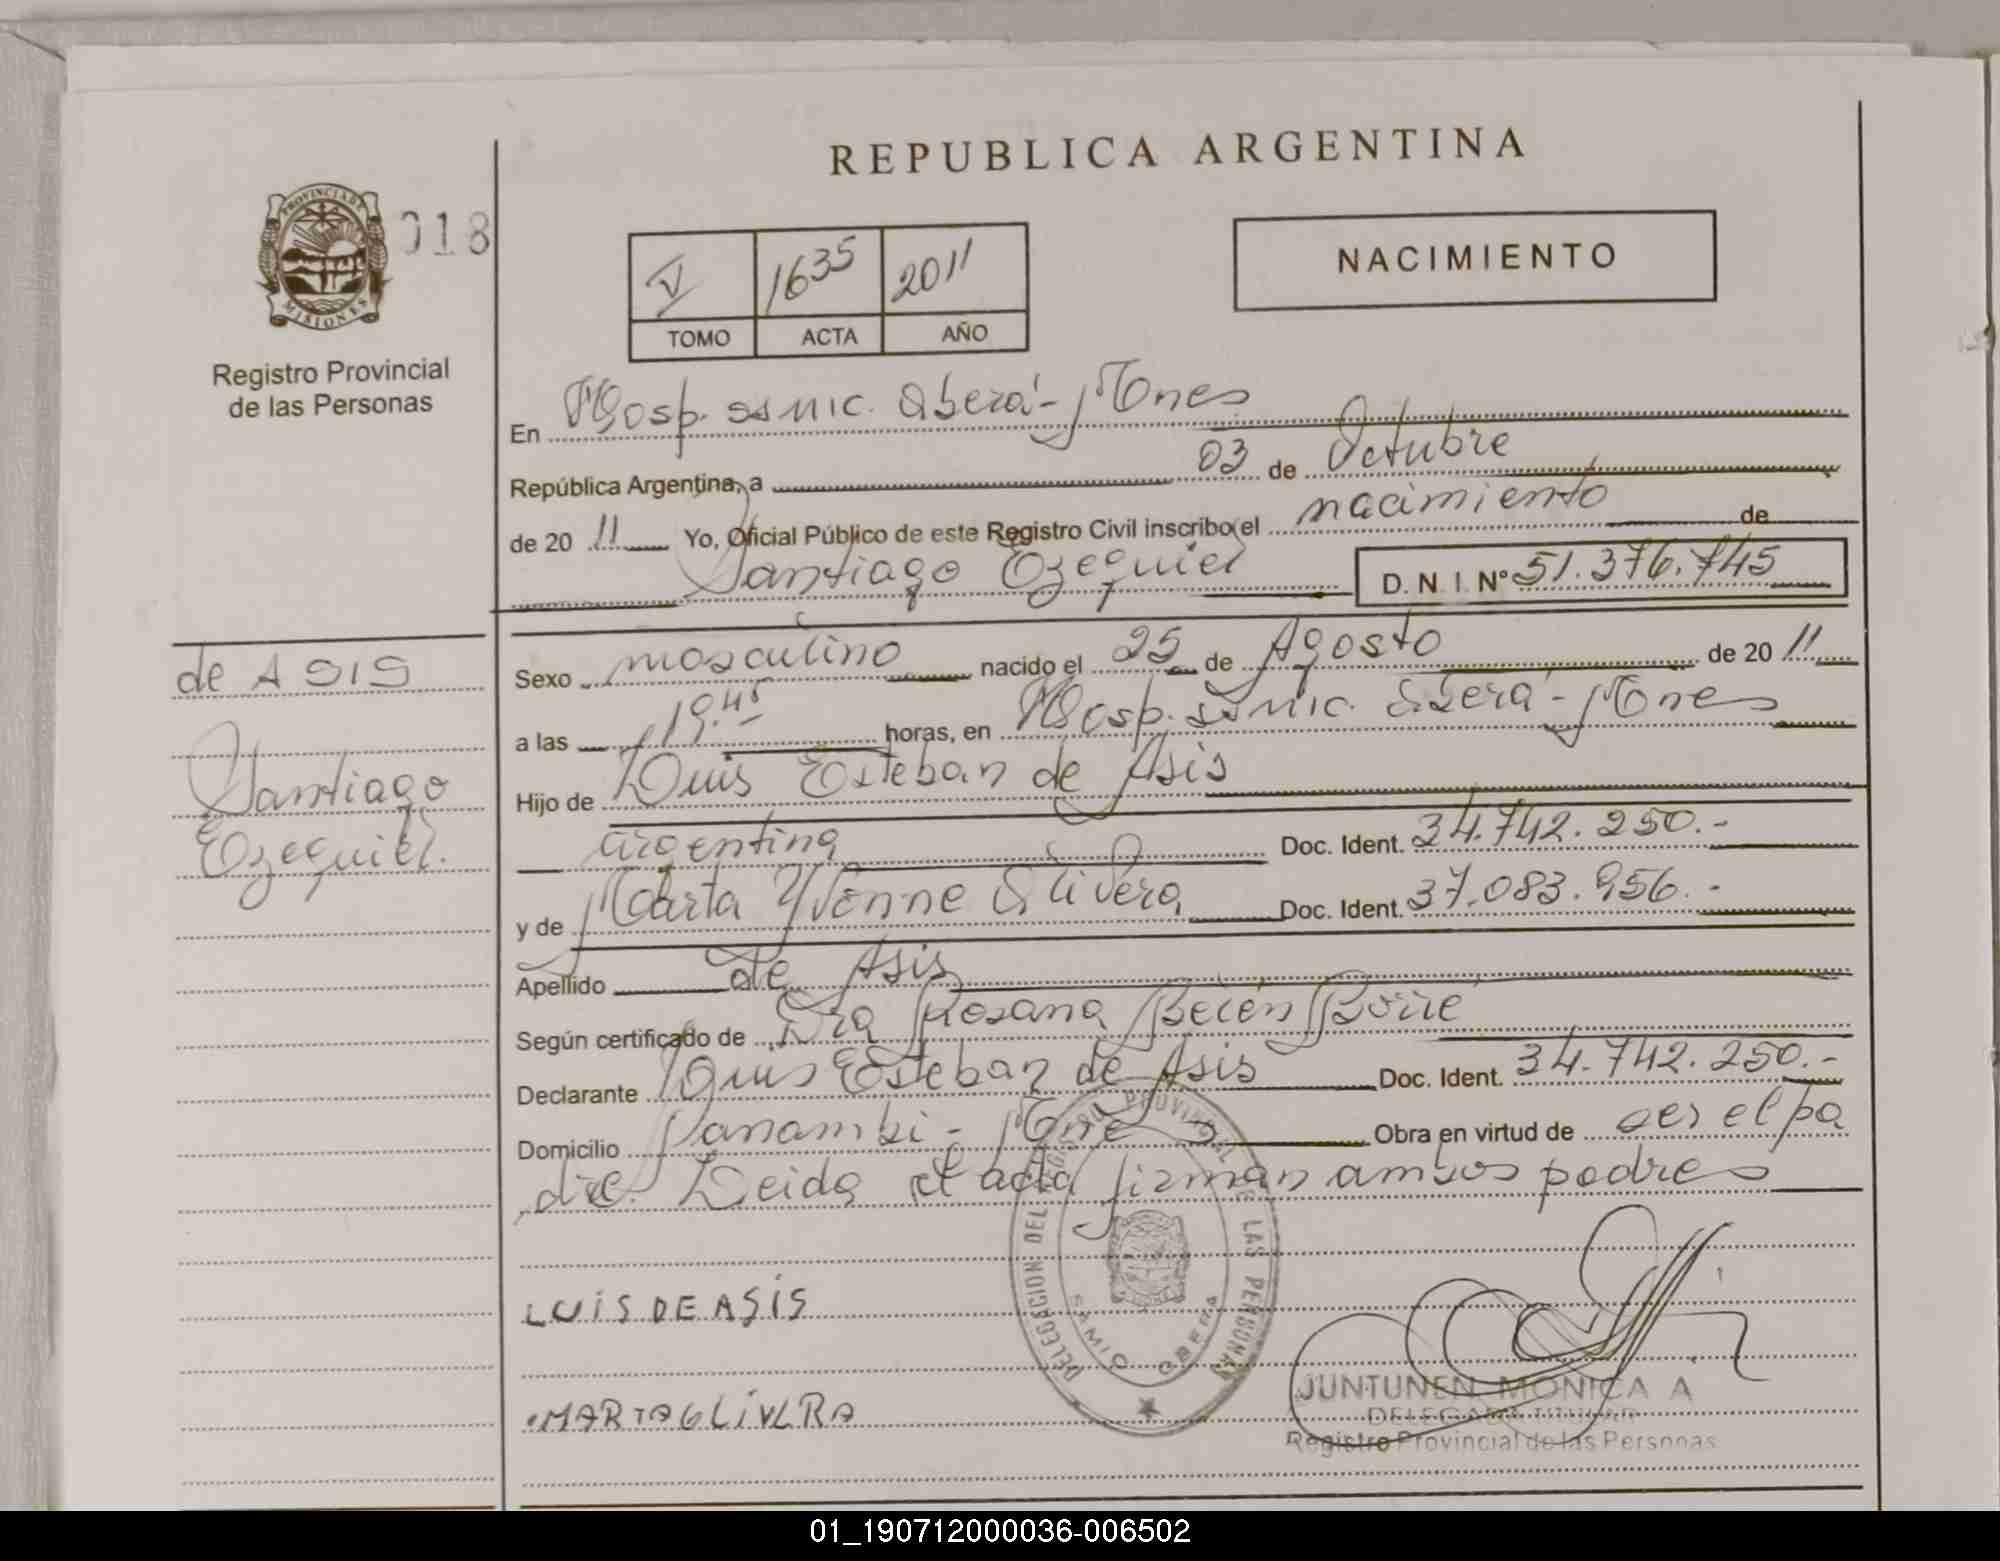 REPUBLICA ARGENTINA
PROVINCIA DE MISIONES
018
Registro Provincial
de las Personas
V 1635 2011
TOMO ACTA AÑO
NACIMIENTO
En Hosp. ss mic. Oberá - Mnes
República Argentina, a 03 de Octubre
de 20 11 Yo, Oficial Público de este Registro Civil inscribo el nacimiento de
Santiago Ezequiel D. N. I. Nº 51.376.745
de ASIS
Santiago
Ezequiel.
Sexo masculino nacido el 25 de Agosto de 20 11
a las 19.45 horas, en Hosp. ss mic. Oberá - Mnes
Hijo de Luis Esteban de Asis
argentina Doc. Ident. 34.742.250.-
y de Marta Yvonne Olivera Doc. Ident. 37.083.956.-
Apellido de Asis
Según certificado de Dra Rosana Belén
Declarante Luis Esteban de Asis Doc. Ident. 34.742.250.-
Domicilio Panambi - Mnes Obra en virtud de ser el pa
dre. Leida el acta firman ambos padres
LUIS DE ASIS
MARTA OLIVERA
DELEGACION DEL REGISTRO PROVINCIAL DE LAS PERSONAS
OBERA
JUNTUNEN MONICA A
DELEGADA TITULAR
Registro Provincial de las Personas
01_190712000036-006502